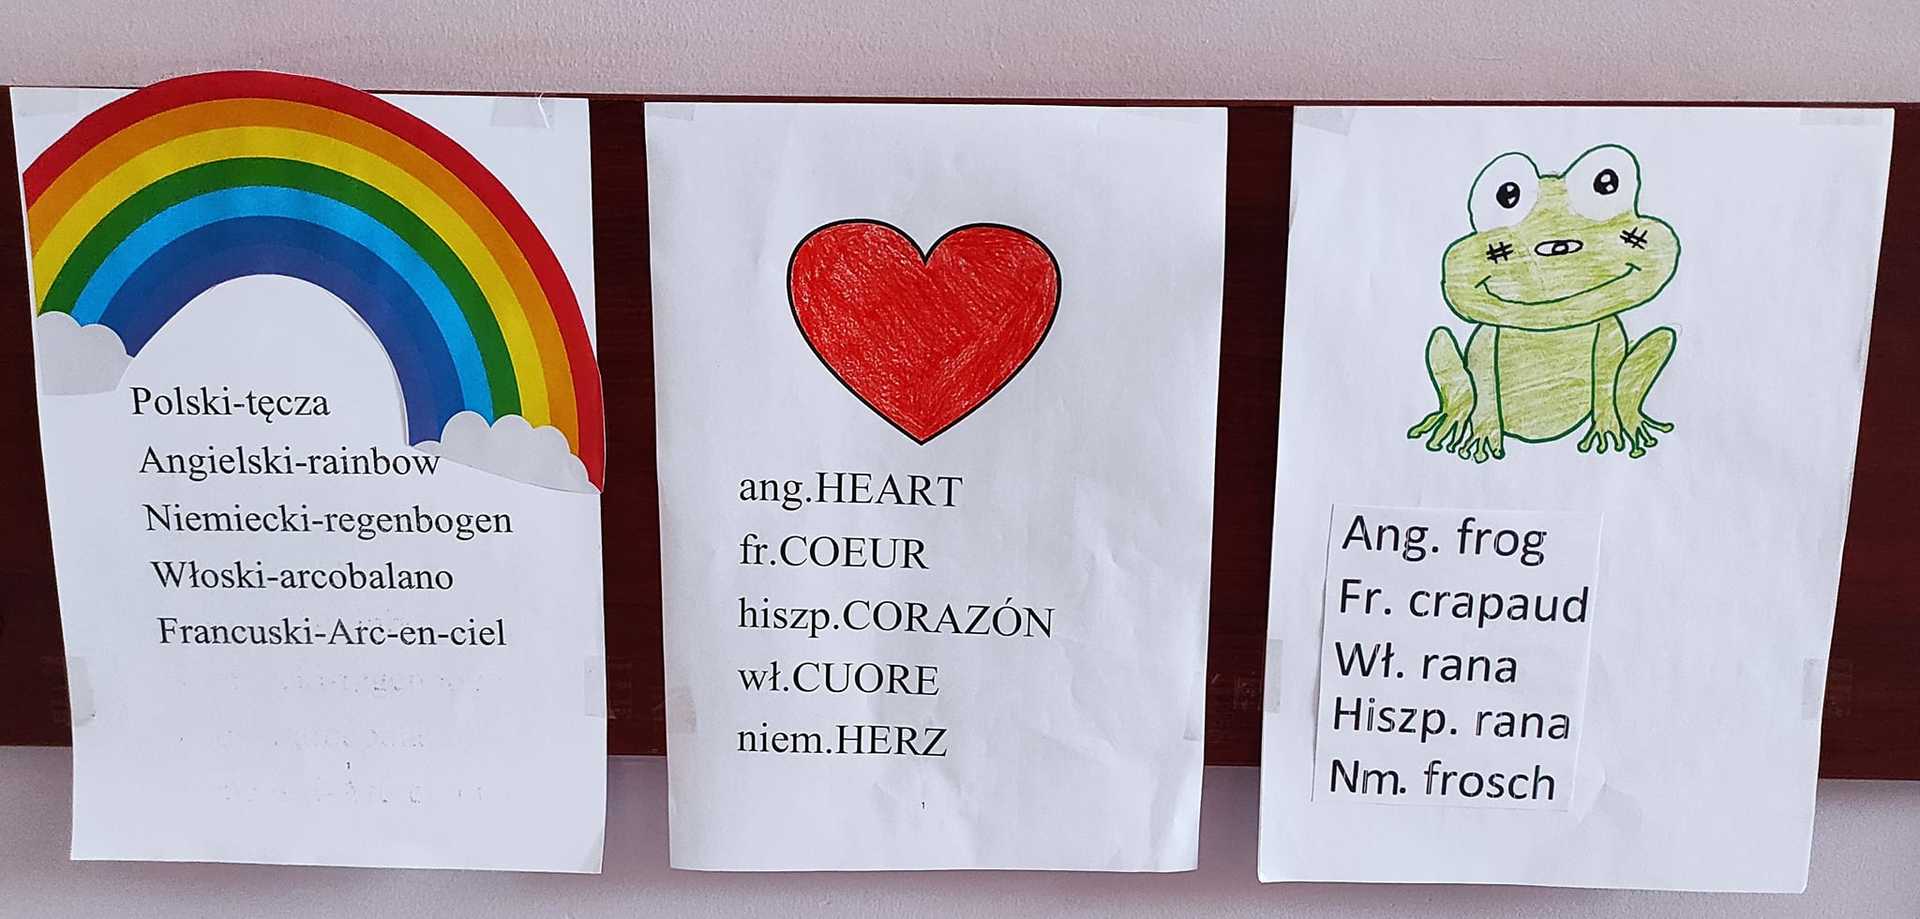 Polski-tęcza
Angielski-rainbow
Niemiecki-regenbogen
Włoski-arcobalano
Francuski-Arc-en-ciel
1
ang.HEART
fr.COEUR
hiszp.CORAZÓN
wł.CUORE
niem.HERZ
1
Ang. frog
Fr. crapaud
Wł. rana
Hiszp. rana
Nm. frosch